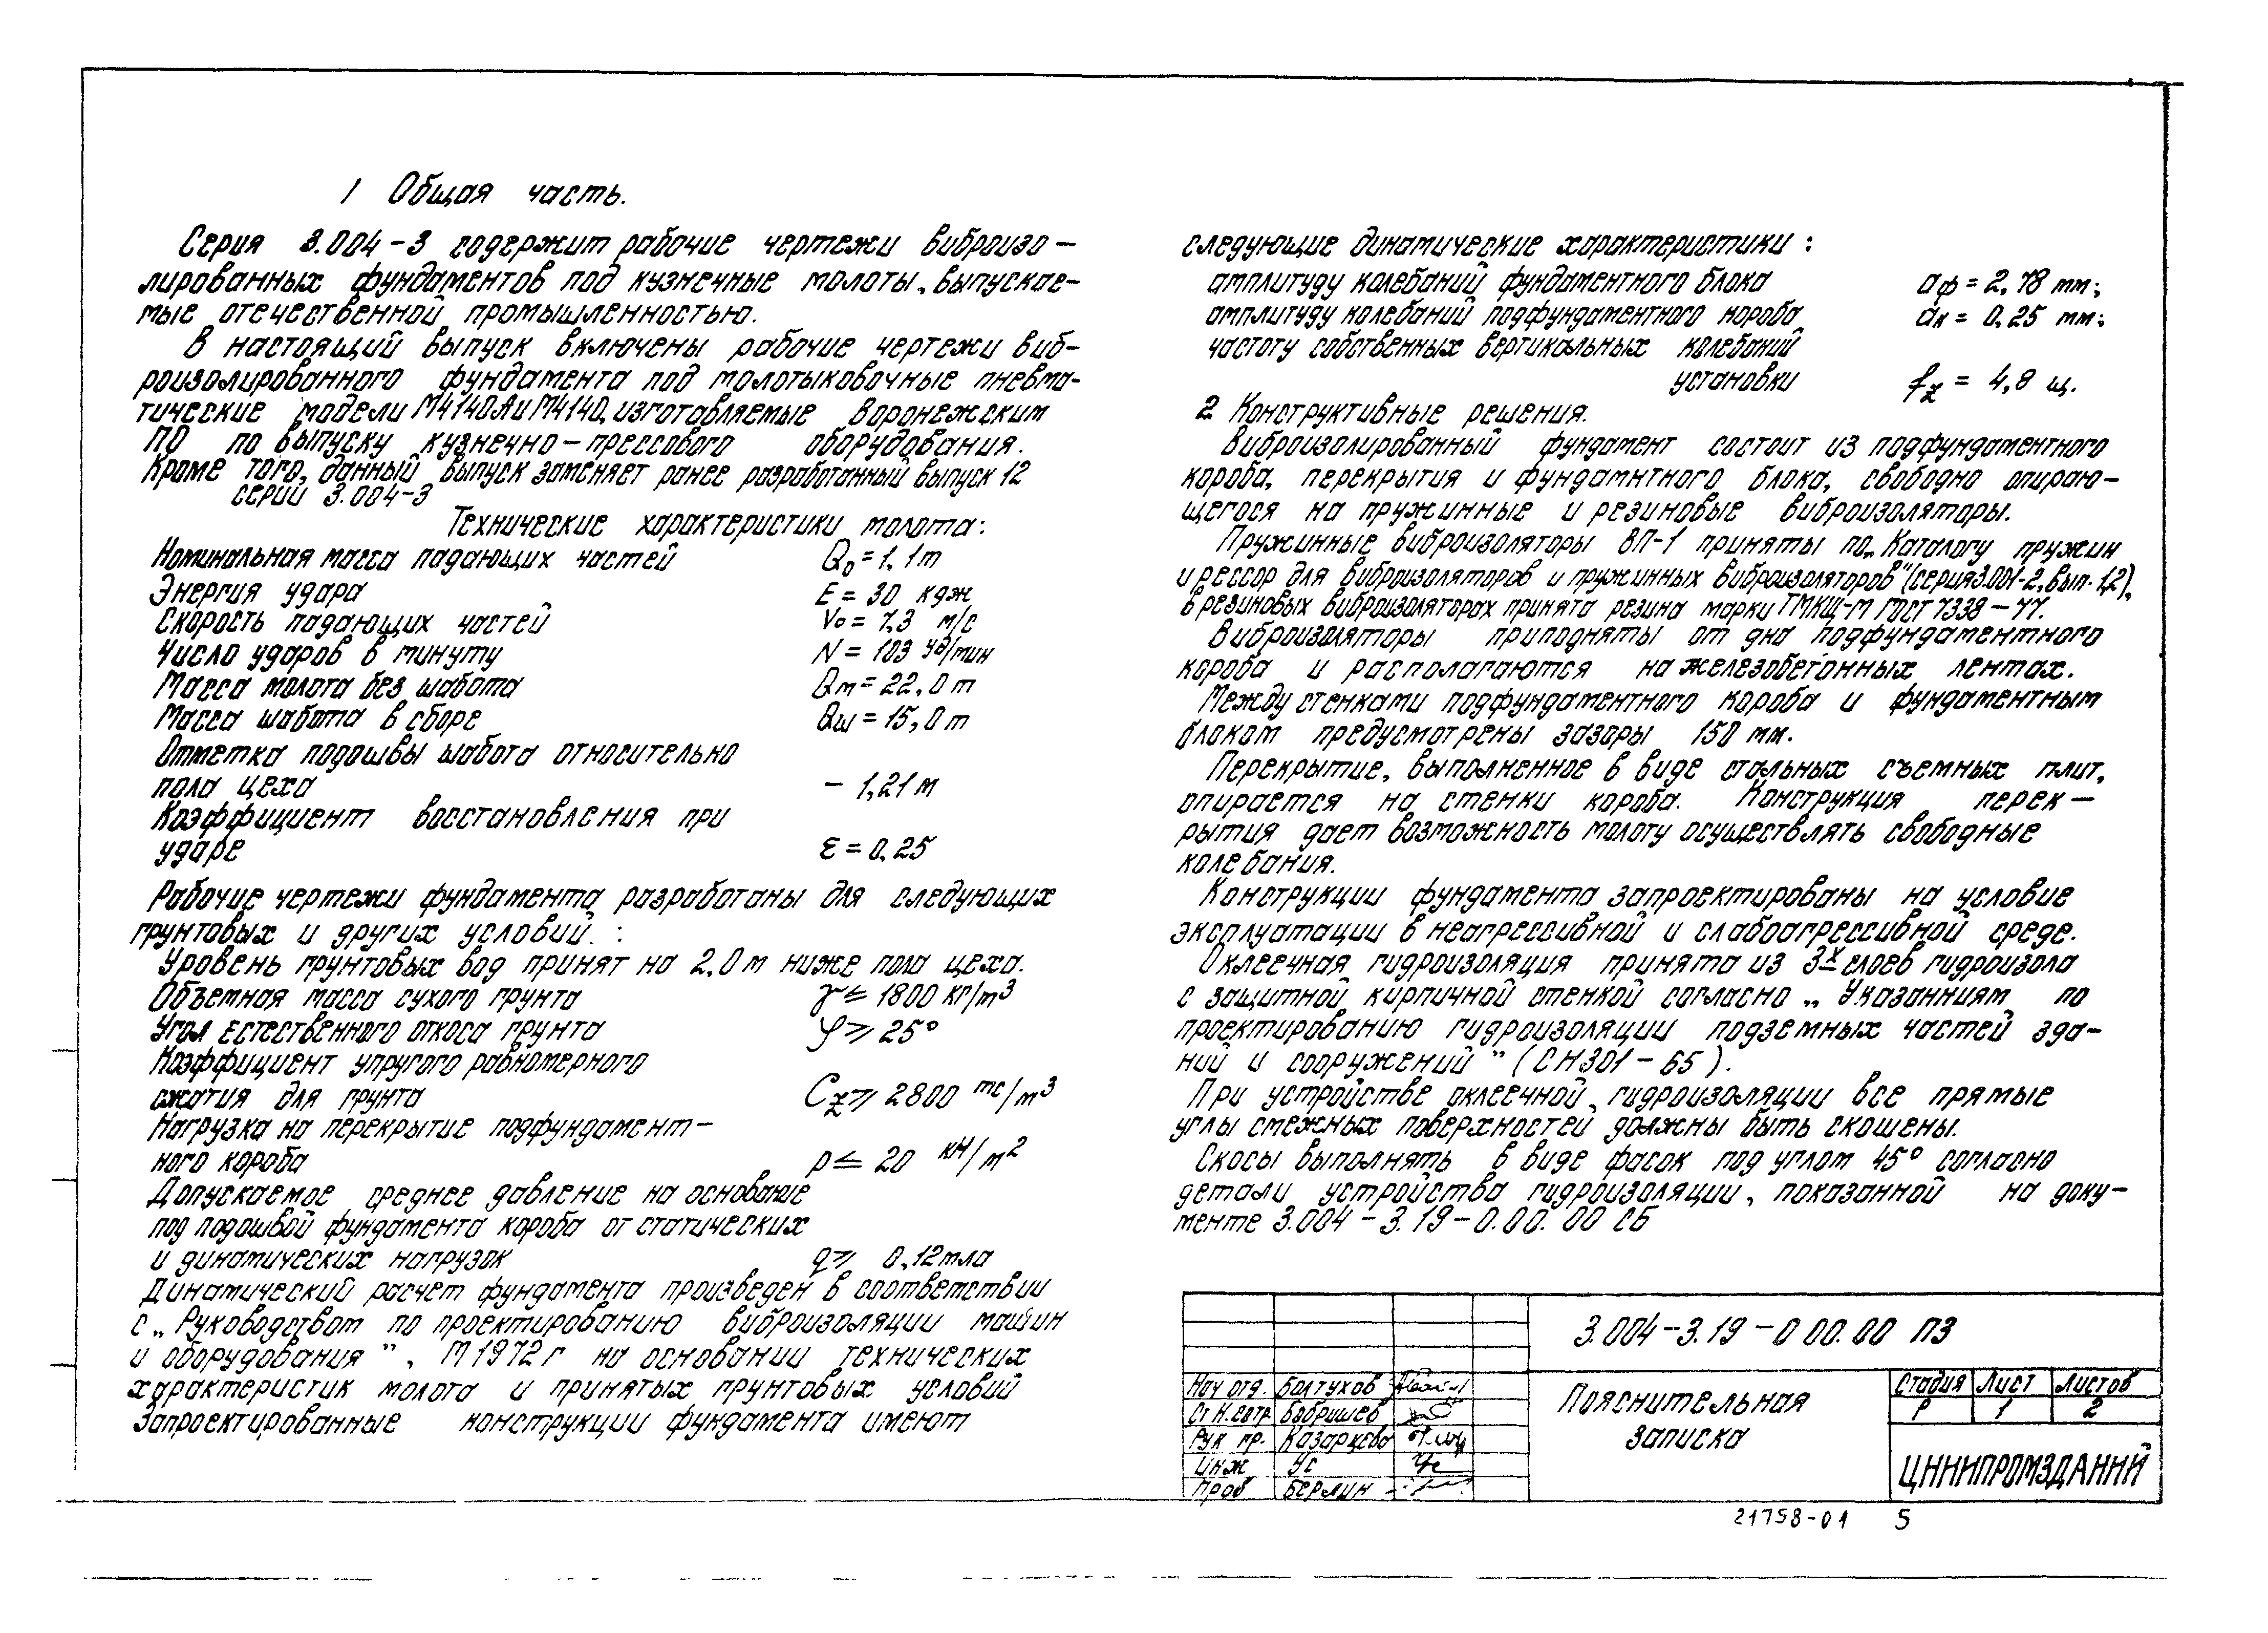 1 Общая часть.
Серия 3.004-3 содержит рабочие чертежи виброизо-
лированных фундаментов под кузнечные молоты, выпускае-
мые отечественной промышленностью.
В настоящий выпуск включены рабочие чертежи виб-
роизолированного фундамента под молотыковочные пневма-
тические модели М4140А и М4140, изготавляемые Воронежским
ПО по выпуску кузнечно-прессового оборудования.
Кроме того, данный выпуск заменяет ранее разработанный выпуск 12
серии 3.004-3
Технические характеристики молота:
Номинальная масса падающих частей Q₀=1,1т
Энергия удара E = 30 кдж
Скорость падающих частей V₀ = 7,3 м/с
Число ударов в минуту N = 103 уд/мин
Масса молота без шабота Qм=22,0т
Масса шабота в сборе Qш=15,0т
Отметка подошвы шабота относительно
пола цеха - 1,21м
Коэффициент восстановления при
ударе ε = 0,25
Рабочие чертежи фундамента разработаны для следующих
грунтовых и других условий :
Уровень грунтовых вод принят на 2,0м ниже пола цеха.
Объемная масса сухого грунта γ ≤ 1800 кг/м³
Угол естественного откоса грунта φ ⩾ 25°
Коэффициент упругого равномерного
сжатия для грунта Cz ⩾ 2800 тс/м³
Нагрузка на перекрытие подфундамент-
ного короба p ≤ 20 кН/м²
Допускаемое среднее давление на основание
под подошвой фундамента короба от статических
и динамических нагрузок q ⩾ 0,12мпа
Динамический расчет фундамента произведен в соответствии
с „Руководством по проектированию виброизоляции машин
и оборудования", М1972г на основании технических
характеристик молота и принятых грунтовых условий
Запроектированные конструкции фундамента имеют
следующие динамические характеристики :
амплитуду колебаний фундаментного блока aф = 2,78 мм;
амплитуду колебаний подфундаментного короба aк = 0,25 мм;
частоту собственных вертикальных колебаний
установки fz = 4,8 гц.
2 Конструктивные решения.
Виброизолированный фундамент состоит из подфундаментного
короба, перекрытия и фундамнтного блока, свободно опираю-
щегося на пружинные и резиновые виброизоляторы.
Пружинные виброизоляторы ВП-1 приняты по „Каталогу пружин
и рессор для виброизоляторов и пружинных виброизоляторов" (серия 3.001-2, вып. 1,2),
в резиновых виброизоляторах принята резина марки ТМКЩ-М ГОСТ 7338-77.
Виброизоляторы приподняты от дна подфундаментного
короба и располагаются на железобетонных лентах.
Между стенками подфундаментного короба и фундаментным
блоком предусмотрены зазоры 150 мм.
Перекрытие, выполненное в виде стальных съемных плит,
опирается на стенки короба. Конструкция перек-
рытия дает возможность молоту осуществлять свободные
колебания.
Конструкции фундамента запроектированы на условие
эксплуатации в неагрессивной и слабоагрессивной среде.
Оклеечная гидроизоляция принята из 3х слоев гидроизола
с защитной кирпичной стенкой согласно „Указанниям по
проектированию гидроизоляции подземных частей зда-
ний и сооружений" (СН301-65).
При устройстве оклеечной гидроизоляции все прямые
углы смежных поверхностей должны быть скошены.
Скосы выполнять в виде фасок под углом 45° согласно
детали устройства гидроизоляции, показанной на доку-
менте 3.004-3.19-0.00.00 СБ
3.004-3.19-0 00.00 ПЗ
Нач отд. Болтухов
Ст н.сотр Бабришев
Рук пр. Казарцева
Инж Ус
Проб Берлин
Пояснительная
записка
Стадия Лист Листов
Р 1 2
ЦНИИПРОМЗДАНИЙ
21758-01 5